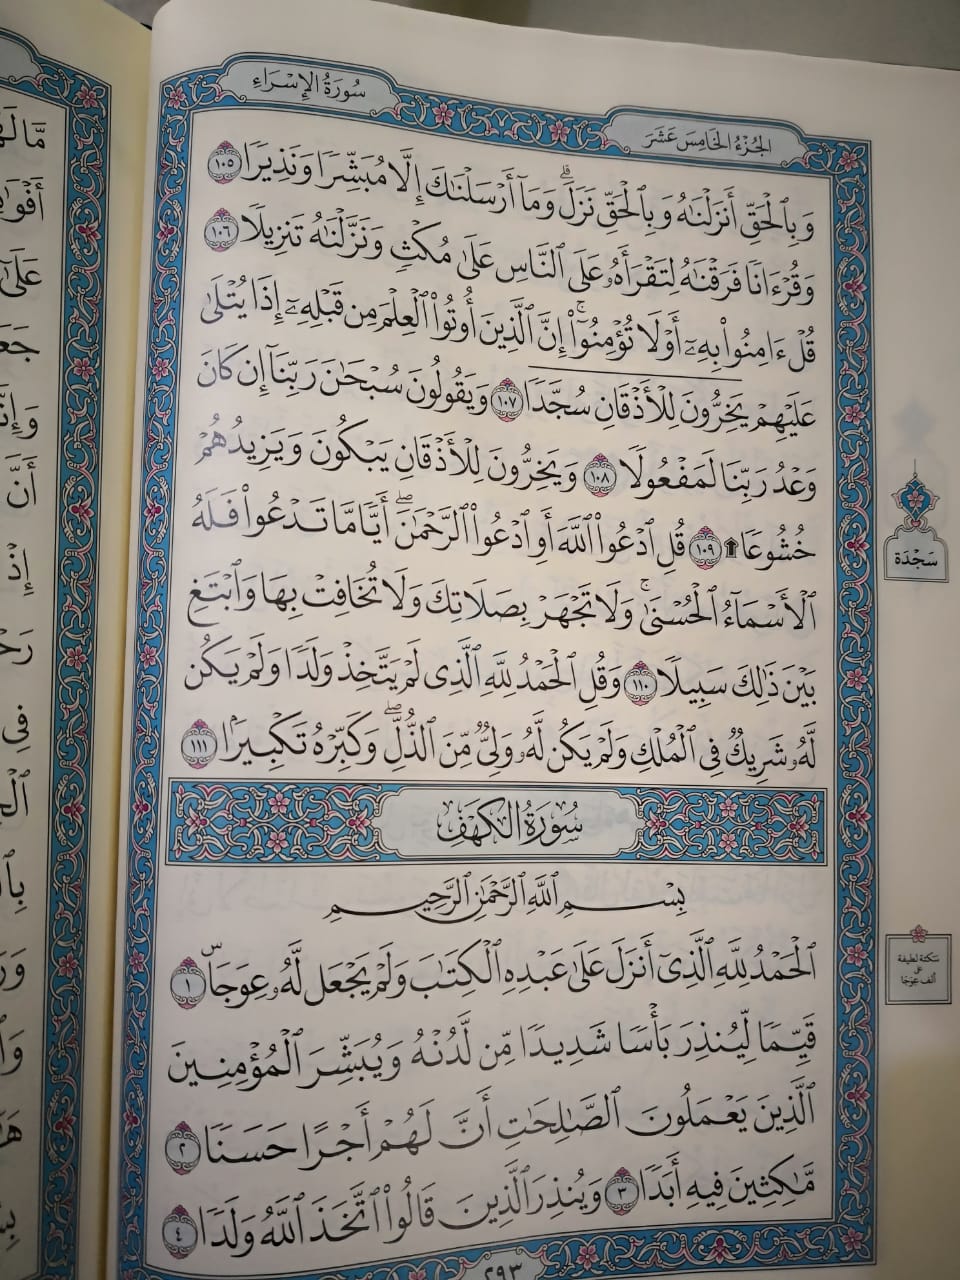 سُورَةُ الإِسْرَاءِ
الجُزْءُ الخَامِسَ عَشَرَ
وَبِٱلْحَقِّ أَنزَلْنَٰهُ وَبِٱلْحَقِّ نَزَلَۗ وَمَآ أَرْسَلْنَٰكَ إِلَّا مُبَشِّرًا وَنَذِيرًا ١٠٥
وَقُرْءَانًا فَرَقْنَٰهُ لِتَقْرَأَهُۥ عَلَى ٱلنَّاسِ عَلَىٰ مُكْثٍ وَنَزَّلْنَٰهُ تَنزِيلًا ١٠٦
قُلْ ءَامِنُوا۟ بِهِۦٓ أَوْ لَا تُؤْمِنُوٓا۟ۚ إِنَّ ٱلَّذِينَ أُوتُوا۟ ٱلْعِلْمَ مِن قَبْلِهِۦٓ إِذَا يُتْلَىٰ
عَلَيْهِمْ يَخِرُّونَ لِلْأَذْقَانِ سُجَّدًا ١٠٧ وَيَقُولُونَ سُبْحَٰنَ رَبِّنَآ إِن كَانَ
وَعْدُ رَبِّنَا لَمَفْعُولًا ١٠٨ وَيَخِرُّونَ لِلْأَذْقَانِ يَبْكُونَ وَيَزِيدُهُمْ
خُشُوعًا ۩ ١٠٩ قُلِ ٱدْعُوا۟ ٱللَّهَ أَوِ ٱدْعُوا۟ ٱلرَّحْمَٰنَۖ أَيًّا مَّا تَدْعُوا۟ فَلَهُ
ٱلْأَسْمَآءُ ٱلْحُسْنَىٰۚ وَلَا تَجْهَرْ بِصَلَاتِكَ وَلَا تُخَافِتْ بِهَا وَٱبْتَغِ
بَيْنَ ذَٰلِكَ سَبِيلًا ١١٠ وَقُلِ ٱلْحَمْدُ لِلَّهِ ٱلَّذِى لَمْ يَتَّخِذْ وَلَدًا وَلَمْ يَكُن
لَّهُۥ شَرِيكٌ فِى ٱلْمُلْكِ وَلَمْ يَكُن لَّهُۥ وَلِىٌّ مِّنَ ٱلذُّلِّۖ وَكَبِّرْهُ تَكْبِيرًۢا ١١١
سُورَةُ الكَهْفِ
بِسْمِ ٱللَّهِ ٱلرَّحْمَٰنِ ٱلرَّحِيمِ
ٱلْحَمْدُ لِلَّهِ ٱلَّذِىٓ أَنزَلَ عَلَىٰ عَبْدِهِ ٱلْكِتَٰبَ وَلَمْ يَجْعَل لَّهُۥ عِوَجَاۜ ١
قَيِّمًا لِّيُنذِرَ بَأْسًا شَدِيدًا مِّن لَّدُنْهُ وَيُبَشِّرَ ٱلْمُؤْمِنِينَ
ٱلَّذِينَ يَعْمَلُونَ ٱلصَّٰلِحَٰتِ أَنَّ لَهُمْ أَجْرًا حَسَنًا ٢
مَّٰكِثِينَ فِيهِ أَبَدًا ٣ وَيُنذِرَ ٱلَّذِينَ قَالُوا۟ ٱتَّخَذَ ٱللَّهُ وَلَدًا ٤
٢٩٣
سَجْدَة
سَكتة لطيفة
على
ألف عِوَجَا